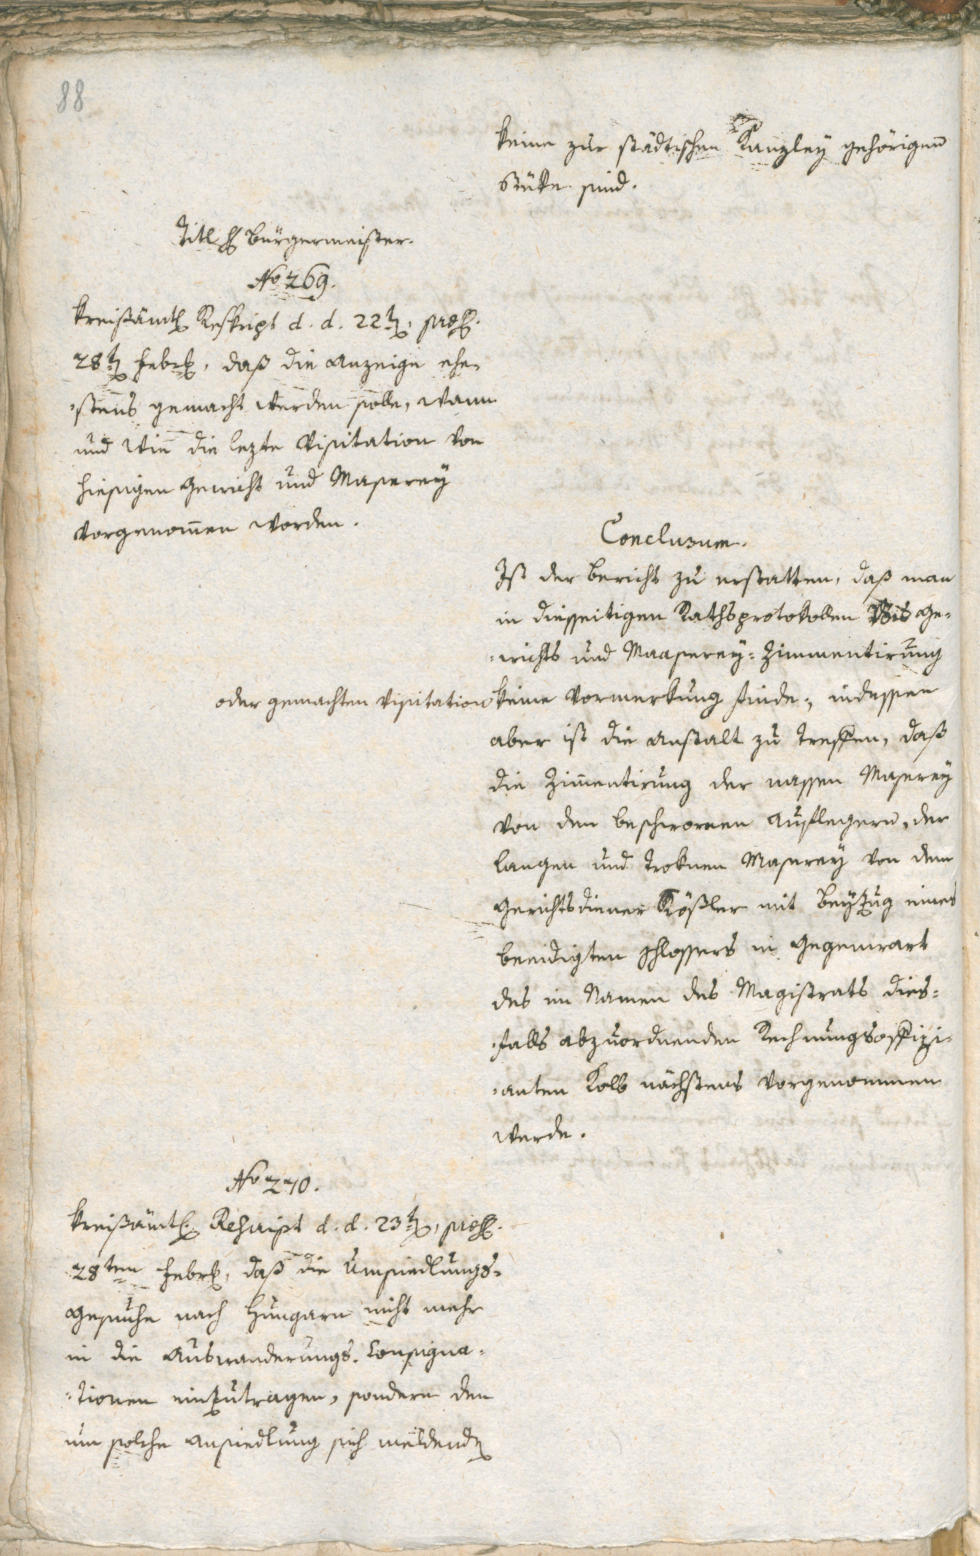 88
keine zur städtischen Kanzley gehörigen
Stüke sind.
Titl. H. Bürgermeister.
No 269.
Kreißämtl. Reskript d. d. 22t., präs.
28t. Febr., daß die Anzeige ehe-
-stens gemacht werden solle, wann
und wie die lezte Visitation von
hiesigen Gewicht und Maserey
vorgenomen worden.
Conclusum.
Ist der Bericht zu erstatten, daß man
in diesseitigen Rathsprotokollen Ge-
-wichts und Maaserey-Zimmentirung
oder gemachten Visitation keine Vormerkung finde, indessen
aber ist die Anstalt zu treffen, daß
die Zimentirung der nassen Maserey
von den beschwornen Auflegern, der
langen und troknen Maserey von dem
Gerichtsdiener Rößler mit Beyzug eines
beeidigten Schlossers in Gegenwart
des im Namen des Magistrats dies-
-falls abzuordnenden Rechnungsoffizi-
-anten Kolb nächstens vorgenommen
werde.
No 270.
Kreißämtl. Reskript d. d. 23t., präs.
28ten Febr., daß die Umsiedlungs-
Gesuche nach Hungarn nicht mehr
in die Auswanderungs-Consigna-
-tionen einzutragen, sondern den
um solche Ansiedlung sich meldenden